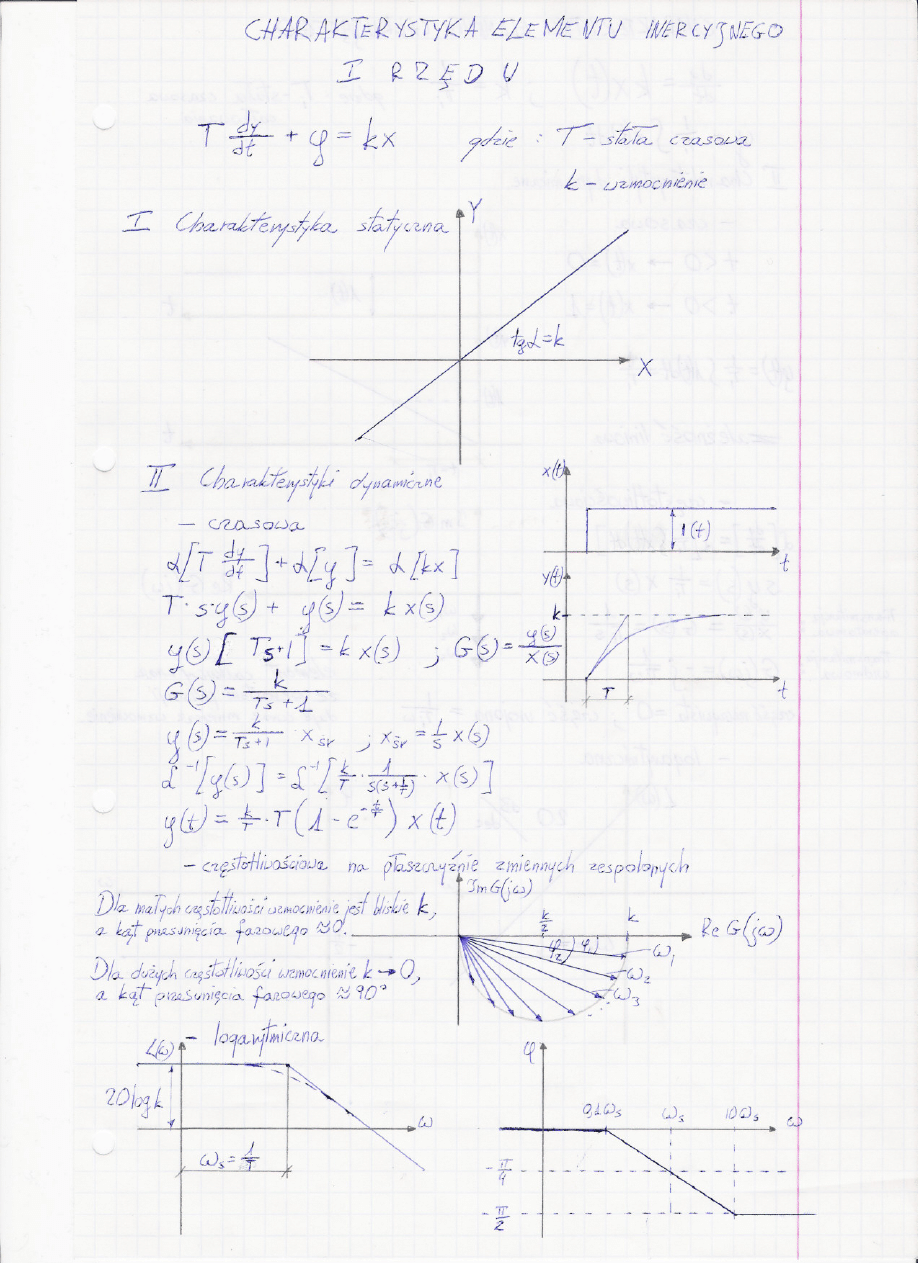 CHARAKTERYSTYKA ELEMENTU INERCYJNEGO
I RZĘDU
T dy/dt + y = kx gdzie : T - stała czasowa
k - wzmocnienie
I Charakterystyka statyczna
Y
tgα = k
X
II Charakterystyki dynamiczne
- czasowa
x(t)
1(t)
t
ℒ[T dy/dt] + ℒ[y] = ℒ[kx]
y(t)
T·sy(s) + y(s) = k x(s)
k
y(s)[Ts+1] = k x(s) ; G(s) = y(s)/x(s)
G(s) = k/(Ts+1)
T
t
y(s) = k/(Ts+1) · xśr ; xśr = 1/s x(s)
ℒ⁻¹[y(s)] = ℒ⁻¹[k/T · 1/(s(s+1/T)) · x(s)]
y(t) = k/T · T(1 - e^(-t/T)) x(t)
- częstotliwościowa na płaszczyźnie zmiennych zespolonych
Im G(jω)
Dla małych częstotliwości wzmocnienie jest bliskie k,
a kąt przesunięcia fazowego ≈0.
k/2 k
Re G(jω)
φ2 φ1 ω1
ω2
ω3
Dla dużych częstotliwości wzmocnienie k→0,
a kąt przesunięcia fazowego ≈90°
- logarytmiczna
L(ω)
20logk
ω
ωs = 1/T
φ
0,1ωs ωs 10ωs ω
-π/4
-π/2